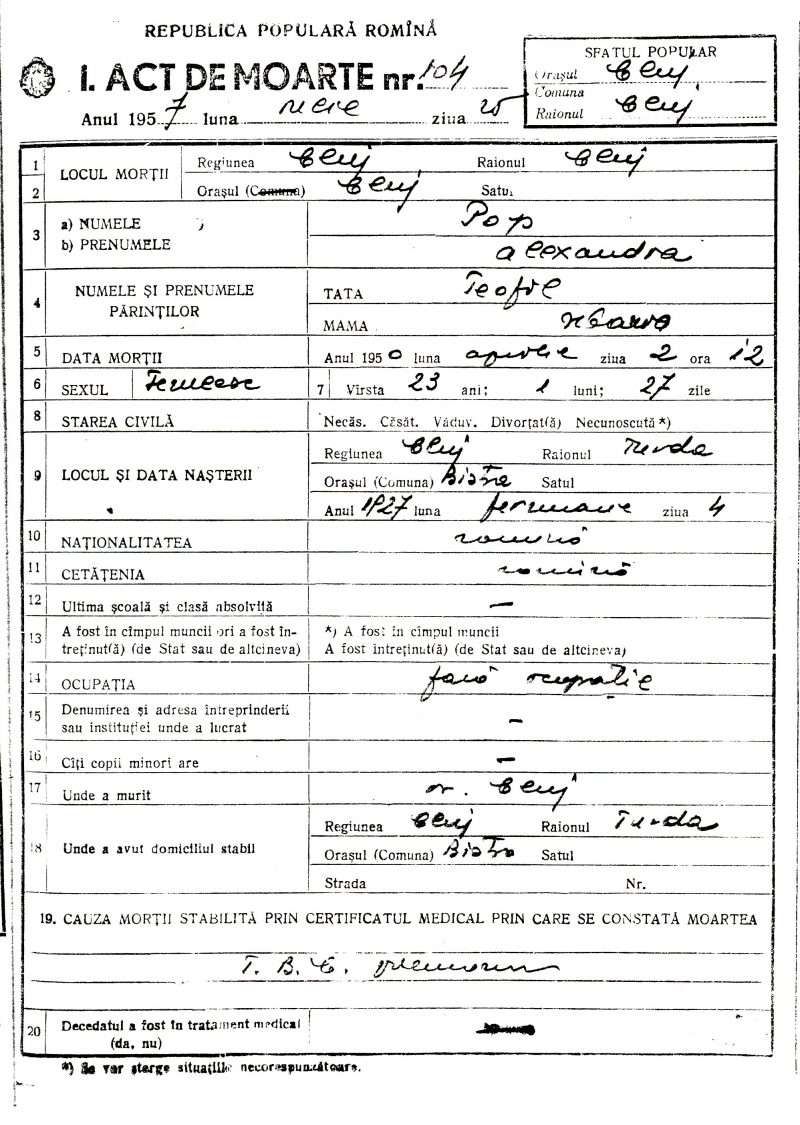 REPUBLICA POPULARĂ ROMÎNĂ
I. ACT DE MOARTE nr. 104
Anul 1957 luna ziua 25
SFATUL POPULAR
Oraşul Cluj
Comuna
Raionul Cluj
1 LOCUL MORŢII Regiunea Cluj Raionul Cluj
2 Oraşul (Comuna) Cluj Satul
3 a) NUMELE Pop
b) PRENUMELE Alexandra
4 NUMELE ŞI PRENUMELE PĂRINŢILOR TATA Teofil
MAMA
5 DATA MORŢII Anul 1950 luna aprilie ziua 2 ora 12
6 SEXUL Femeesc 7 Vîrsta 23 ani; 1 luni; 27 zile
8 STAREA CIVILĂ Necăs. Căsăt. Văduv. Divorţat(ă) Necunoscută *)
9 LOCUL ŞI DATA NAŞTERII Regiunea Cluj Raionul Turda
Oraşul (Comuna) Bistra Satul
Anul 1927 luna ziua 4
10 NAŢIONALITATEA romînă
11 CETĂŢENIA romînă
12 Ultima şcoală şi clasă absolvită —
13 A fost în cîmpul muncii ori a fost în- *) A fost în cîmpul muncii
treţinut(ă) (de Stat sau de altcineva) A fost întreţinut(ă) (de Stat sau de altcineva)
14 OCUPAŢIA fară ocupatie
15 Denumirea şi adresa întreprinderii
sau instituţiei unde a lucrat —
16 Cîţi copii minori are —
17 Unde a murit or. Cluj
18 Unde a avut domiciliul stabil Regiunea Cluj Raionul Turda
Oraşul (Comuna) Bistra Satul
Strada Nr.
19. CAUZA MORŢII STABILITĂ PRIN CERTIFICATUL MEDICAL PRIN CARE SE CONSTATĂ MOARTEA
T. B. C.
20 Decedatul a fost în tratament medical
(da, nu)
*) Se vor şterge situaţiile necorespunzătoare.